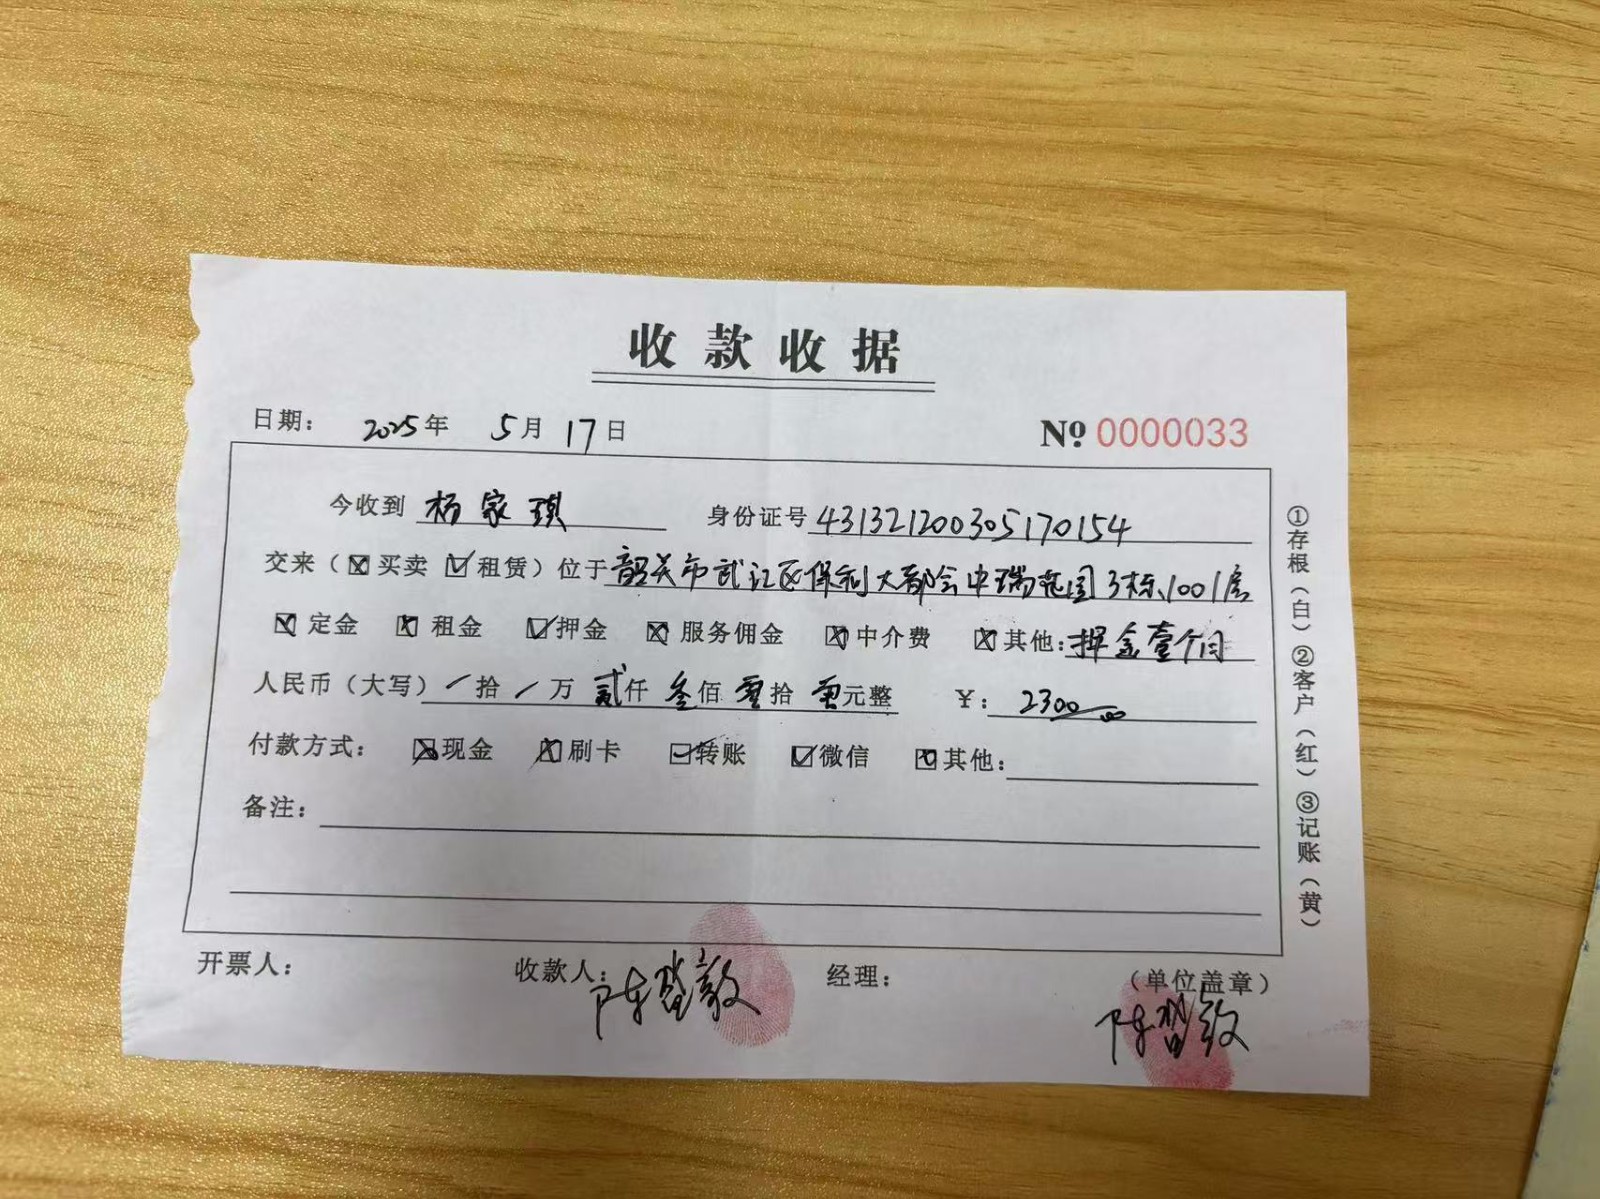 收款收据
日期： 2025年 5月 17日 No 0000033
今收到 杨家琪 身份证号 431321200305170154
交来（☒买卖 ☑租赁）位于韶关市武江区保利大都会中瑞范园3栋1001房
☒定金 ☒租金 ☑押金 ☒服务佣金 ☒中介费 ☒其他：押金壹个月
人民币（大写）/拾/万贰仟叁佰零拾零元整 ¥：2300.00
付款方式： ☒现金 ☒刷卡 ☐转账 ☑微信 ☒其他：
备注：
开票人： 收款人：陈 敏 经理： （单位盖章）
陈
①存根（白）②客户（红）③记账（黄）